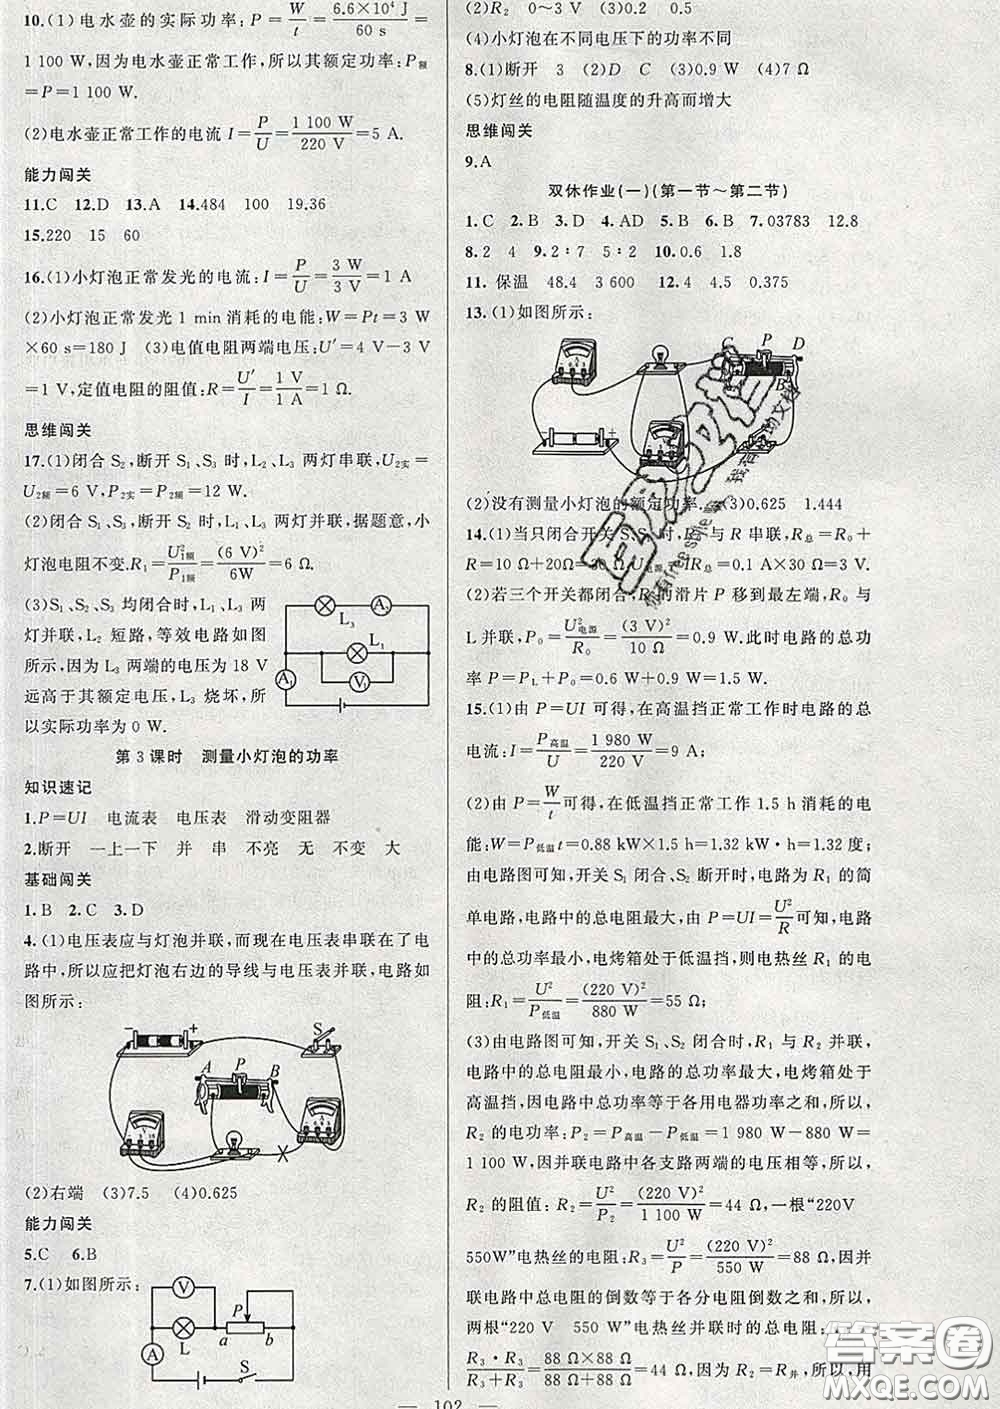 10.(1)电水壶的实际功率:P=W/t=6.6×10⁴ J/60 s=
1 100 W,因为电水壶正常工作,所以其额定功率:P额
=P=1 100 W.
(2)电水壶正常工作的电流 I=P/U=1 100 W/220 V=5 A.
能力闯关
11.C 12.D 13.A 14.484 100 19.36
15.220 15 60
16.(1)小灯泡正常发光的电流:I=P/U=3 W/3 V=1 A
(2)小灯泡正常发光 1 min 消耗的电能:W=Pt=3 W
×60 s=180 J (3)电值电阻两端电压:U′=4 V-3 V
=1 V,定值电阻的阻值:R=U′/I=1 V/1 A=1 Ω.
思维闯关
17.(1)闭合 S₂,断开 S₁、S₃ 时,L₂、L₃ 两灯串联,U2实=
U2额=6 V,P2实=P2额=12 W.
(2)闭合 S₁、S₃,断开 S₂ 时,L₁、L₃ 两灯并联,据题意,小
灯泡电阻不变.R₁=U²1额/P1额=(6 V)²/6W=6 Ω.
(3)S₁、S₂、S₃ 均闭合时,L₁、L₃ 两
灯并联,L₂ 短路,等效电路如图
所示,因为 L₃ 两端的电压为 18 V
远高于其额定电压,L₃ 烧坏,所
以实际功率为 0 W.
L₃ A₂ L₁ V₁ A₁
第 3 课时 测量小灯泡的功率
知识速记
1.P=UI 电流表 电压表 滑动变阻器
2.断开 一上一下 并 串 不亮 无 不变 大
基础闯关
1.B 2.C 3.D
4.(1)电压表应与灯泡并联,而现在电压表串联在了电
路中,所以应把灯泡右边的导线与电压表并联,电路如
图所示:
- + S
A P B
V A
(2)右端 (3)7.5 (4)0.625
能力闯关
5.C 6.B
7.(1)如图所示:
V P L a b A S
(2)R₂ 0～3 V (3)0.2 0.5
(4)小灯泡在不同电压下的功率不同
8.(1)断开 3 (2)D C (3)0.9 W (4)7 Ω
(5)灯丝的电阻随温度的升高而增大
思维闯关
9.A
双休作业(一)(第一节～第二节)
1.C 2.B 3.D 4.AD 5.B 6.B 7.03783 12.8
8.2 4 9.2∶7 5∶2 10.0.6 1.8
11. 保温 48.4 3 600 12.4 4.5 0.375
13.(1)如图所示:
C P D B
- +
(2)没有测量小灯泡的额定功率. (3)0.625 1.444
14.(1)当只闭合开关 S、S₁ 时,R₀ 与 R 串联,R总=R₀+
R=10 Ω+20Ω=30 Ω,U电源=IR总=0.1 A×30 Ω=3 V.
(2)若三个开关都闭合,R 的滑片 P 移到最左端,R₀ 与
L 并联,P₀=U²电源/R₀=(3 V)²/10 Ω=0.9 W.此时电路的总功
率 P=PL+P₀=0.6 W+0.9 W=1.5 W.
15.(1)由 P=UI 可得,在高温挡正常工作时电路的总
电流:I=P高温/U=1 980 W/220 V=9 A;
(2)由 P=W/t可得,在低温挡正常工作 1.5 h 消耗的电
能:W=P低温t=0.88 kW×1.5 h=1.32 kW·h=1.32 度;
由电路图可知,开关 S₁ 闭合、S₂ 断开时,电路为 R₁ 的简
单电路,电路中的总电阻最大,由 P=UI=U²/R可知,电路
中的总功率最小,电烤箱处于低温挡,则电热丝 R₁ 的电
阻:R₁=U²/P低温=(220 V)²/880 W=55 Ω;
(3)由电路图可知,开关 S₁、S₂ 闭合时,R₁ 与 R₂ 并联,
电路中的总电阻最小,电路的总功率最大,电烤箱处于
高温挡,因电路中总功率等于各用电器功率之和,所以,
R₂ 的电功率:P₂=P高温-P低温=1 980 W-880 W=
1 100 W,因并联电路中各支路两端的电压相等,所以,
R₂ 的阻值:R₂=U²/P₂=(220 V)²/1 100 W=44 Ω,一根“220V
550W”电热丝的电阻:R₃=U²/P=(220 V)²/550 W=88 Ω,因并
联电路中总电阻的倒数等于各分电阻倒数之和,所以,
两根“220 V 550 W”电热丝并联时的总电阻:R并=
R₃·R₃/R₃+R₃=88 Ω×88 Ω/88 Ω+88 Ω=44 Ω,因为 R₂=R并,所以,用
— 102 —
答案圈
MXQE.COM